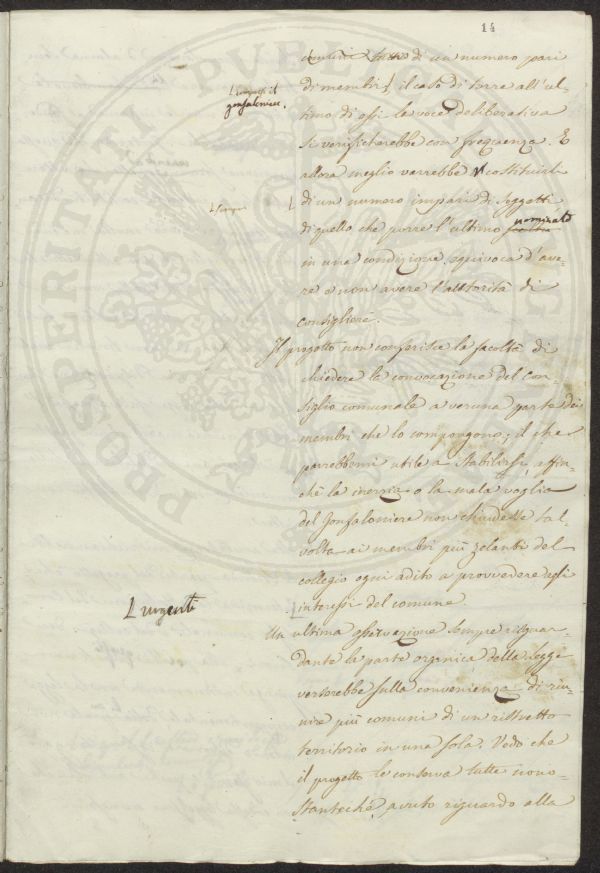 14
di un numero pari
di membri, il caso di torre all'ul-
timo di essi la voce deliberativa
si verificherebbe con frequenza. E
allora meglio varrebbe costituirli
di un numero impari di soggetti
di quello che porre l'ultimo nominato
in una condizione equivoca d'ave-
re o non avere l'autorità di
Consigliere.
Il progetto non conferisce la facoltà di
chiedere la convocazione del Con-
siglio comunale a veruna parte dei
membri che lo compongono; il che
parrebbemi utile a stabilirsi, affin-
chè la inerzia o la mala voglia
del Gonfaloniere non chiudesse tal
volta ai membri più zelanti del
collegio ogni adito a provvedere agli
interessi del comune.
Un ultima osservazione sempre riguar-
dante la parte organica della legge
verserebbe sulla convenienza di riu-
nire più comuni di un ristretto
territorio in una sola. Vedo che
il progetto le conserva tutte nono-
stantechè, avuto riguardo alla
gonfaloniere.
urgenti
PROSPERITATI PUBLICAE